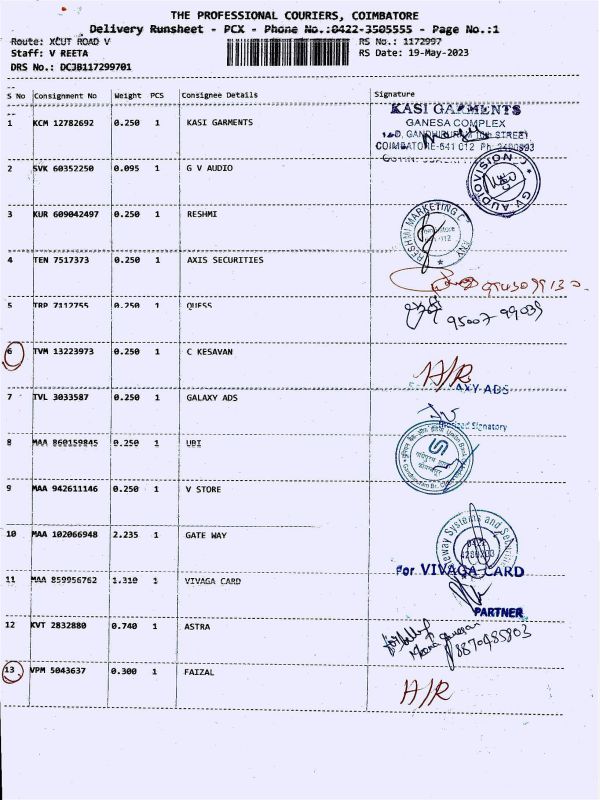 THE PROFESSIONAL COURIERS, COIMBATORE
Delivery Runsheet - PCX - Phone No.:0422-3505555 - Page No.:1
Route: XCUT ROAD V RS No.: 1172997
Staff: V REETA RS Date: 19-May-2023
DRS No.: DCJB117299701
S No Consignment No Weight PCS Consignee Details Signature
1 KCM 12782692 0.250 1 KASI GARMENTS
KASI GARMENTS
GANESA COMPLEX
COIMBATORE-641 012
2 SVK 60352250 0.095 1 G V AUDIO
GV AUDIOVISION
3 KUR 609042497 0.250 1 RESHMI
RESHMI MARKETING
4 TEN 7517373 0.250 1 AXIS SECURITIES
5 TRP 7112755 0.250 1 QUESS
95007 99039
6 TVM 13223973 0.250 1 C KESAVAN
A/R
7 TVL 3033587 0.250 1 GALAXY ADS
AXY ADS
Signatory
8 MAA 860159845 0.250 1 UBI
9 MAA 942611146 0.250 1 V STORE
10 MAA 102066948 2.235 1 GATE WAY
eway Systems and
11 MAA 859956762 1.310 1 VIVAGA CARD
For VIVAGA CARD
PARTNER
12 KVT 2832880 0.740 1 ASTRA
8870485803
13 VPM 5043637 0.300 1 FAIZAL
A/R